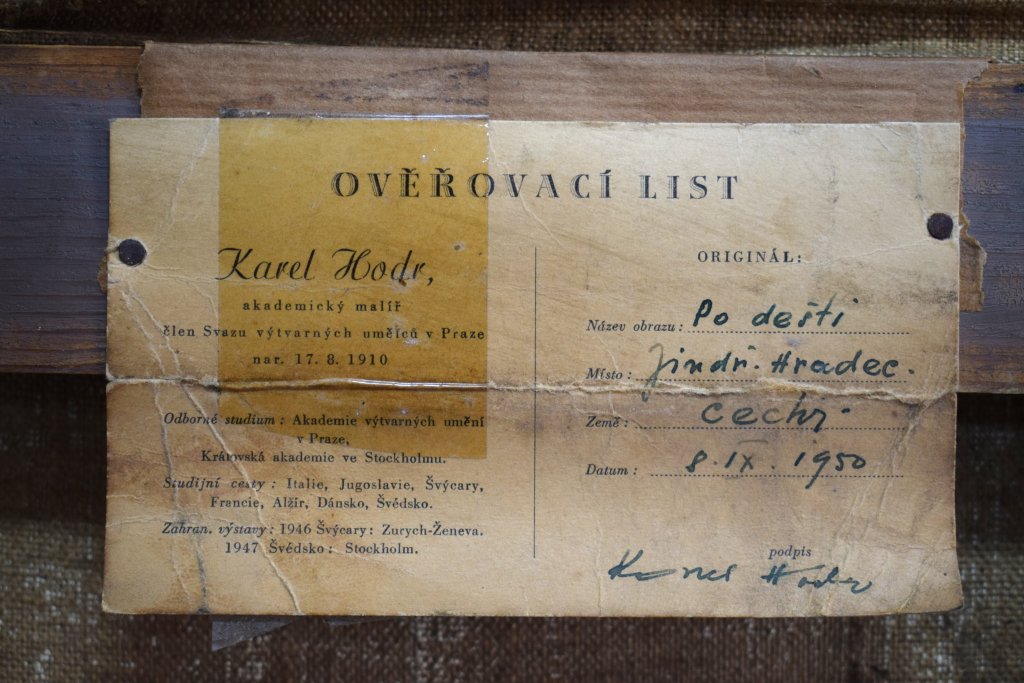 OVĚŘOVACÍ LIST
Karel Hodr,
akademický malíř
člen Svazu výtvarných umělců v Praze
nar. 17. 8. 1910
Odborné studium: Akademie výtvarných umění
v Praze,
Královská akademie ve Stockholmu.
Studijní cesty: Italie, Jugoslavie, Švýcary,
Francie, Alžír, Dánsko, Švédsko.
Zahran. výstavy: 1946 Švýcary: Zurych-Ženeva.
1947 Švédsko: Stockholm.
ORIGINÁL:
Název obrazu: Po dešti
Místo: Jindř. Hradec.
Země: Čechy.
Datum: 8. IX. 1950
podpis
Karel Hodr